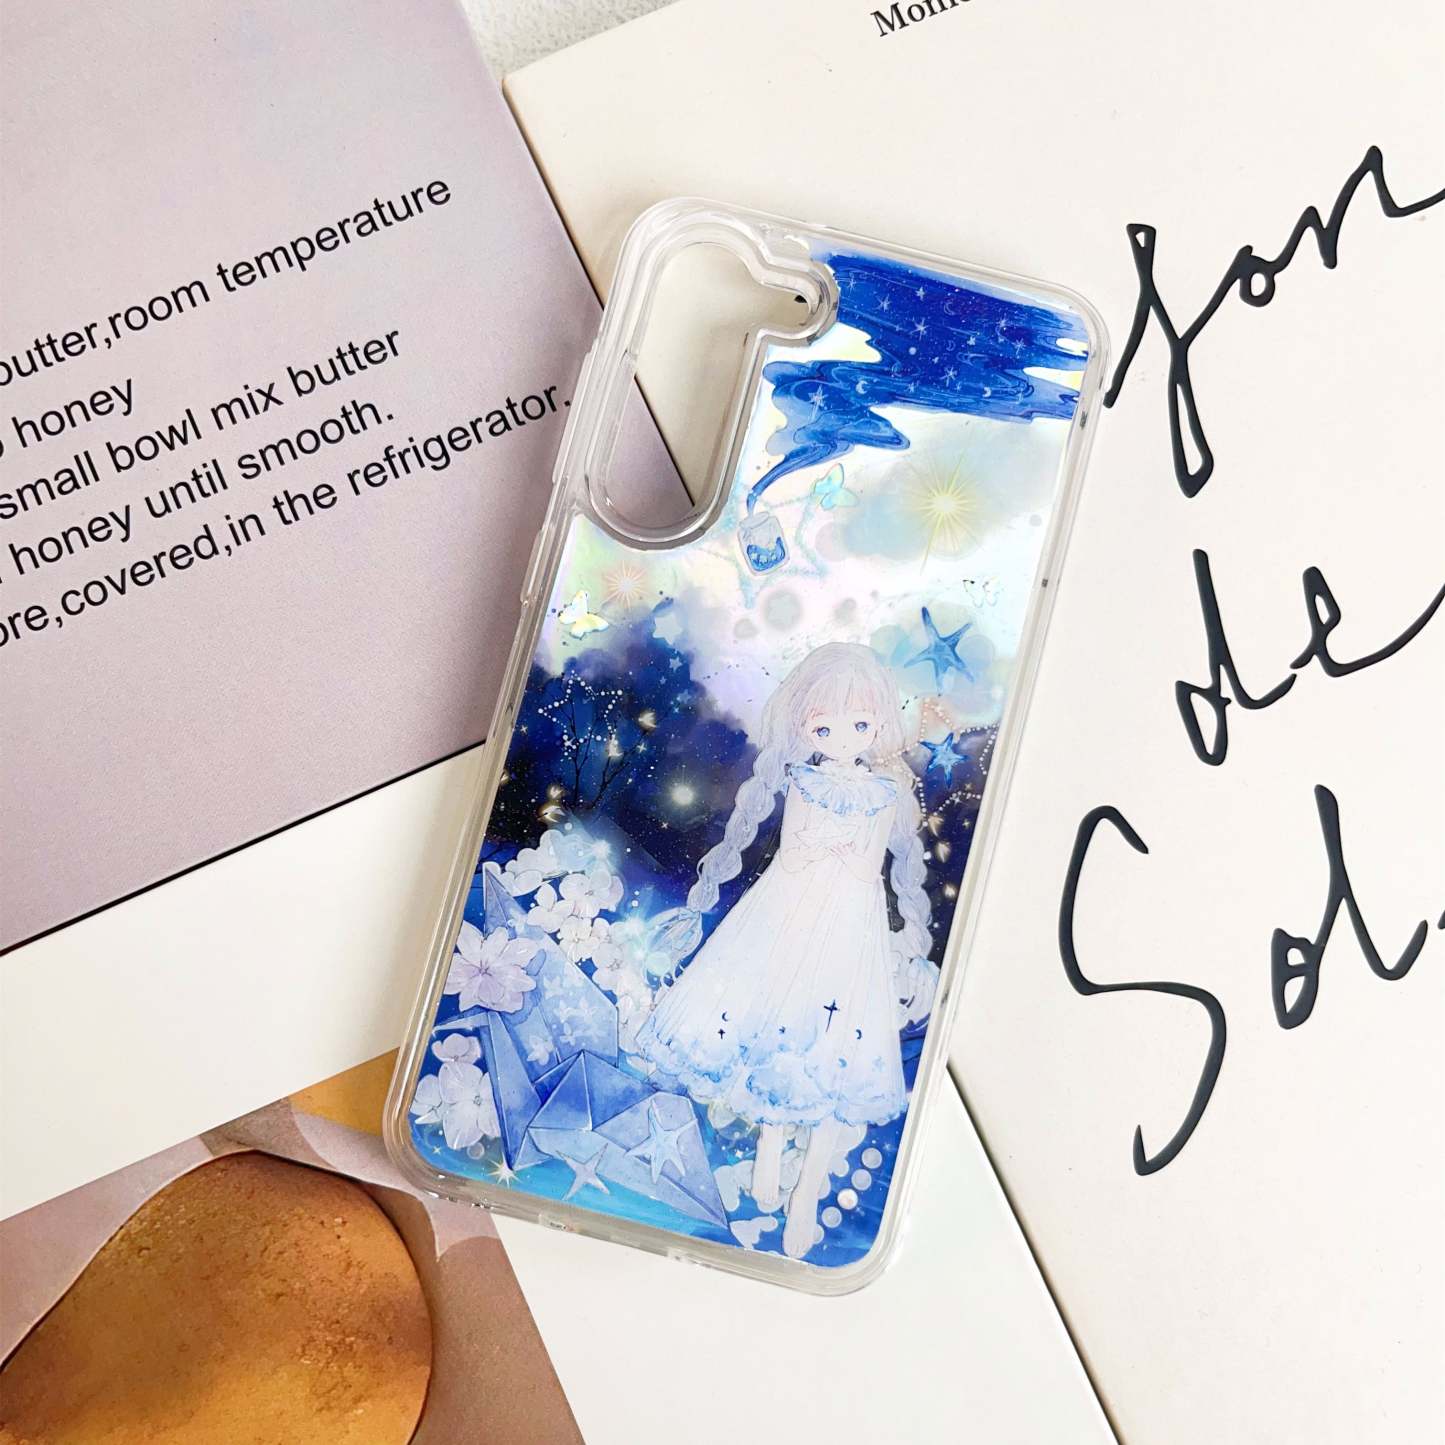 butter,room temperature
honey
small bowl mix butter
honey until smooth.
covered,in the refrigerator.
fon
de
Sol